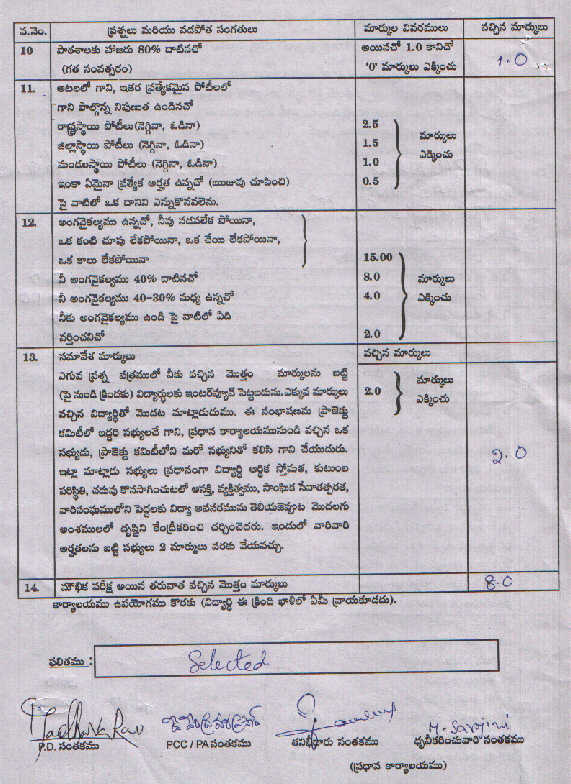 ప.నెం. ప్రశ్నలు మరియు పడపోత సంగతులు మార్కుల వివరములు వచ్చిన మార్కులు
10 పాఠశాలకు హాజరు 80% దాటినచో అయినచో 1.0 కానిచో 1.0
(గత సంవత్సరం) '0' మార్కులు ఎక్కించు
11. ఆటలలో గాని, ఇతర ప్రత్యేకమైన పోటీలలో
గాని పాల్గొన్న నిపుణుత ఉండినచో
రాష్ట్రస్థాయి పోటీలు(నెగ్గినా, ఓడినా) 2.5 మార్కులు
జిల్లాస్థాయి పోటీలు (నెగ్గినా, ఓడినా) 1.5 ఎక్కించు
మండలస్థాయి పోటీలు (నెగ్గినా, ఓడినా) 1.0
ఇంకా ఏమైనా ప్రత్యేక అర్హత ఉన్నచో (ఋజువు చూపించి) 0.5
పై వాటిలో ఒక దానిని ఎన్నుకొనవలెను.
12. అంగవైకల్యము ఉన్నచో, నీవు నడువలేక పోయినా,
ఒక కంటి చూపు లేకపోయినా, ఒక చేయి లేకపోయినా,
ఒక కాలు లేకపోయినా 15.00
నీ అంగవైకల్యము 40% దాటినచో 8.0 మార్కులు
నీ అంగవైకల్యము 40-30% మధ్య ఉన్నచో 4.0 ఎక్కించు
నీకు అంగవైకల్యము ఉండి పై వాటిలో ఏది
వర్తించనిచో 2.0
13. సమావేశ మార్కులు వచ్చిన మార్కులు
ఎగువ ప్రశ్న పత్రములో నీకు వచ్చిన మొత్తం మార్కులను బట్టి 2.0 మార్కులు
(పై నుండి క్రిందకు) విద్యార్థులకు ఇంటర్వ్యూవ్ పెట్టబడును. ఎక్కువ మార్కులు ఎక్కించు
వచ్చిన విద్యార్థితో మొదట మాట్లాడుదుము. ఈ సంభాషణను ప్రాజెక్టు
కమిటీలో ఇద్దరి సభ్యులచే గాని, ప్రధాన కార్యాలయమునుండి వచ్చిన ఒక
సభ్యుడు, ప్రాజెక్టు కమిటీలోని మరో సభ్యునితో కలిసి గాని చేయుదురు. 2.0
ఇట్లా మాట్లాడు సభ్యులు ప్రధానంగా విద్యార్థి ఆర్థిక స్తోమత, కుటుంబ
పరిస్థితి, చదువు కొనసాగించుటలో ఆసక్తి, వ్యక్తిత్వము, సాంఘిక సేవాతత్పరత,
వారిసంఘములోని పెద్దలకు విద్యా అవసరమును తెలియజెప్పుట మొదలగు
అంశములలో దృష్టిని కేంద్రీకరించి చర్చించెదరు. ఇందులో వారివారి
అర్హతలను బట్టి సభ్యులు 2 మార్కులు వరకు వేయవచ్చు.
14. మౌఖిక పరీక్ష అయిన తరువాత వచ్చిన మొత్తం మార్కులు 8.0
కార్యాలయము ఉపయోగము కొరకు (విద్యార్థి ఈ క్రింది ఖాళీలో ఏమీ వ్రాయకూడదు).
ఫలితము : Selected
P.D. సంతకము PCC / PA సంతకము తనిఖీదారు సంతకము ధృవీకరించువారి సంతకము
(ప్రధాన కార్యాలయము)